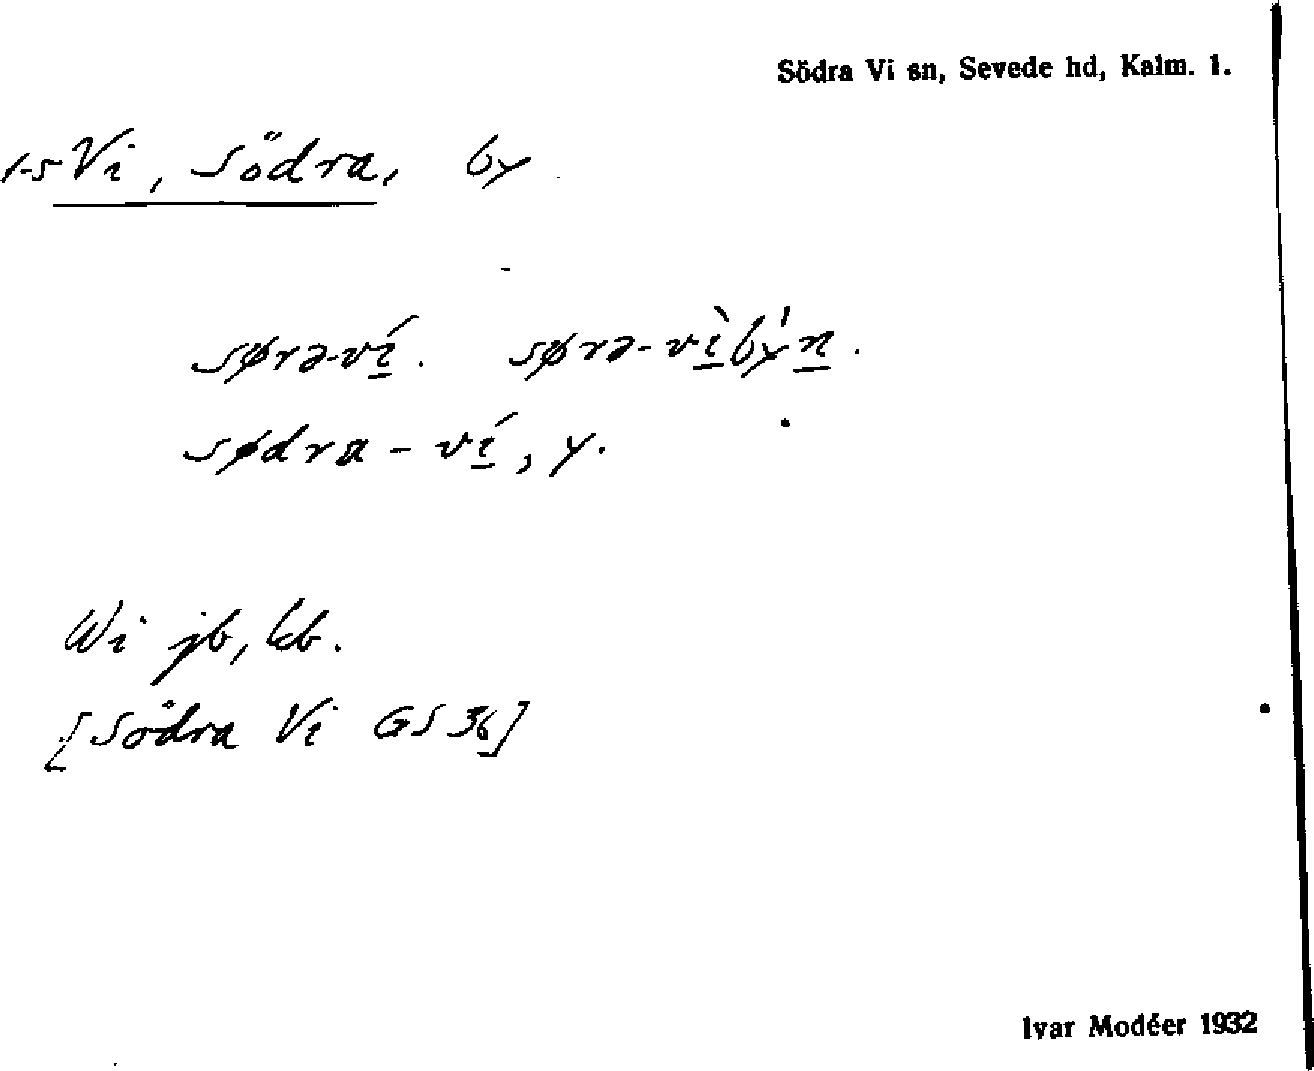 Södra Vi sn, Sevede hd, Kalm. l.
1-5 Vi, Södra, by
sørə-ví. sørə-vìbýn.
sødra-ví, y.
Wi jb, kb.
[Södra Vi GS 36]
Ivar Modéer 1932